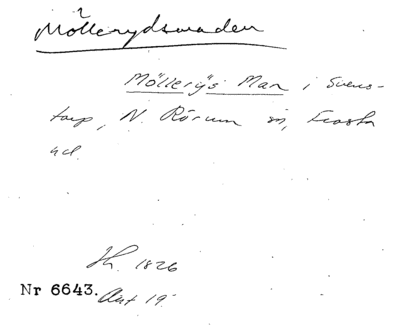 Möllerydsmaden
Möllerys Man i Svens-
torp, N. Rörum sn, Frosta
hd.
Jh. 1826
Nr 6643. Akt 19.